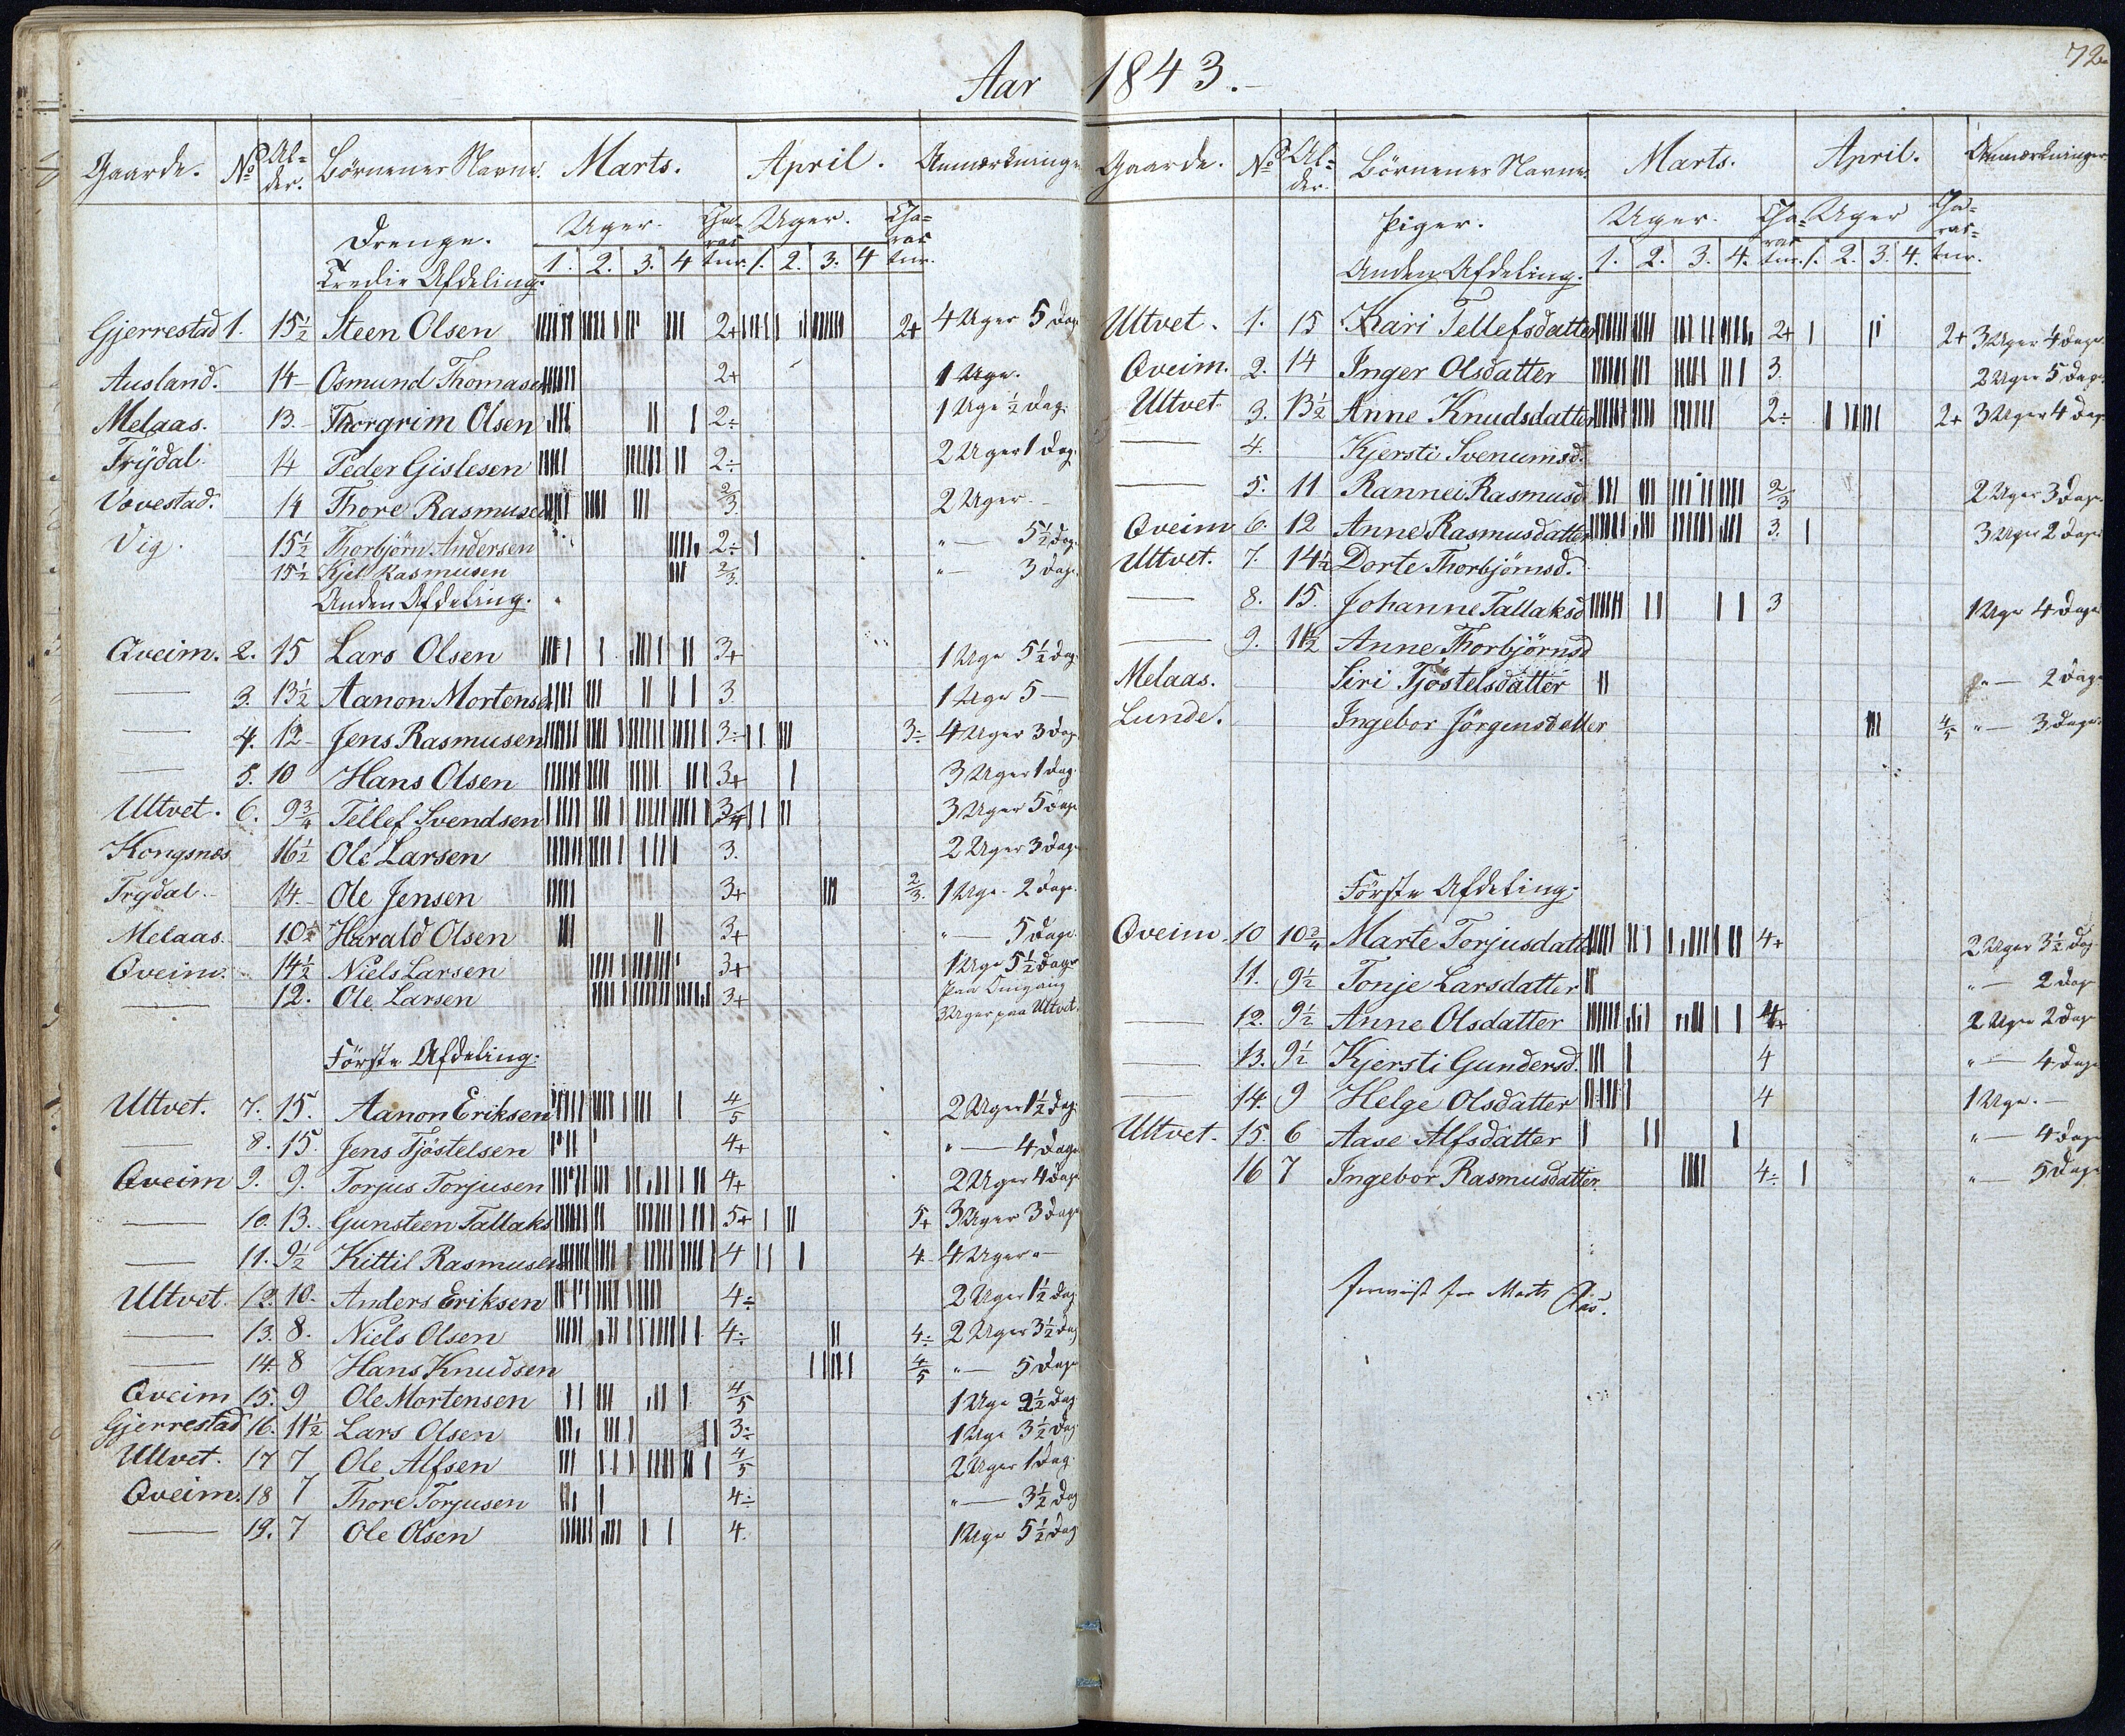 Aar 1843.
72
Gaarde. No Al-der. Börnenes Navne. Marts. April. Anmærkninger
Drenge. Uger. Cha-rac-ter. Uger. Cha-rac-ter.
Tredie Afdeling. 1. 2. 3. 4 1. 2. 3. 4
Gjerrestad 1. 15½ Steen Olsen 2+ 2+ 4 Uger 5 Dag
Ausland. 14 Osmund Thomasen 2+ 1 Uge.
Melaas. 13. Thorgrim Olsen 2÷ 1 Uge ½ Dag.
Frÿdal 14 Peder Gislesen 2÷ 2 Uger 1 Dag.
Vovestad. 14 Thore Rasmusen 2/3 2 Uger
Vig. 15½ Thorbjörn Andersen 2÷ " — 5½ Dag.
15½ Kjel Rasmusen 2/3 " — 3 Dage
Anden Afdeling.
Qveim. 2. 15 Lars Olsen 3+ 1 Uge 5½ Dag
— 3. 13½ Aanon Mortensen 3 1 Uge 5 —
— 4. 12 Jens Rasmusen 3÷ 3÷ 4 Uger 3 Dag
— 5. 10 Hans Olsen 3+ 3 Uger 1 Dag.
Ultvet. 6. 9¾ Tellef Svendsen 3 Uger 5 Dage
Kongsnæs 16½ Ole Larsen 3. 2 Uger 3 Dage
Frydal. 14. Ole Jensen 3+ 2/3. 1 Uge. 2 Dage.
Melaas. 10½ Harald Olsen 3+ " — 5 Dage.
Qveim. 14½ Niels Larsen 3+ 1 Uge 5½ Dage
— 12. Ole Larsen 3+ paa Omgang
3 Uger paa Ultvet.
Förste Afdeling.
Ultvet. 7. 15. Aanon Eriksen 4/5 2 Uger 1½ Dag.
— 8. 15. Jens Tjöstelsen 4+ " — 4 Dage
Qveim 9. 9. Torjus Torjusen 4+ 2 Uger 4 Dage
— 10. 13. Gunsteen Tallaks 5+ 5+ 3 Uger 3 Dage
— 11. 9½ Kittil Rasmusen 4 4. 4 Uger " —
Ultvet. 12. 10. Anders Eriksen 4÷ 2 Uger 1½ Dag.
— 13. 8. Niels Olsen 4÷ 4÷ 2 Uger 3½ Dag
— 14. 8 Hans Knudsen 4/5 " — 5 Dage
Qveim 15. 9 Ole Mortensen 4/5 1 Uge 2½ Dag
Gjerrestad 16. 11½ Lars Olsen 3÷ 1 Uge 3½ Dag
Ultvet. 17 7 Ole Alfsen 4/5 2 Uger 1 Dag.
Qveim. 18 7 Thore Torjusen 4÷ " — 3½ Dag
— 19. 7 Ole Olsen 4. 1 Uge 5½ Dag
Gaarde. No Al-der. Börnenes Navne. Marts. April. Anmærkninger.
Piger. Uger. Cha-rac-ter. Uger Cha-rac-ter.
Anden Afdeling. 1. 2. 3. 4. 1. 2. 3. 4.
Ultvet. 1. 15 Kari Tellefsdatter 2+ 2+ 3 Uger 4 Dage.
Qveim. 2. 14 Inger Olsdatter 3. 2 Uger 5 Dage
Ultvet. 3. 13½ Anne Knudsdatter 2÷ 2+ 3 Uger 4 Dag.
— 4. Kjersti Svenumsd.
— 5. 11 Rannei Rasmusd 2/3 2 Uger 3 Dage.
Qveim 6. 12 Anne Rasmusdatter 3. 3 Uger 2 Dage
Ultvet. 7. 14½ Dorte Thorbjörnsd.
— 8. 15. Johanne Tallaksd 3 1 Uge 4 Dage
— 9. 11½ Anne Thorbjörnsd
Melaas. Siri Tjöstelsdatter " — 2 Dage
Lunde. Ingebor Jörgensdatter 4/5 " — 3 Dage
Förste Afdeling.
Qveim 10 10¾ Marte Torjusdatter 4+ 2 Uger 3½ Dag
11. 9½ Tonje Larsdatter " — 2 Dage
— 12. 9½ Anne Olsdatter 4+ 2 Uger 2 Dage
— 13. 9½ Kjersti Gundersd. 4 " — 4 Dage
— 14. 9 Helge Olsdatter 4 1 Uge. —
Ultvet. 15. 6 Aase Alfsdatter " — 4 Dage
16 7 Ingebor Rasmusdatter. 4÷ " — 5 Dage
for Marts